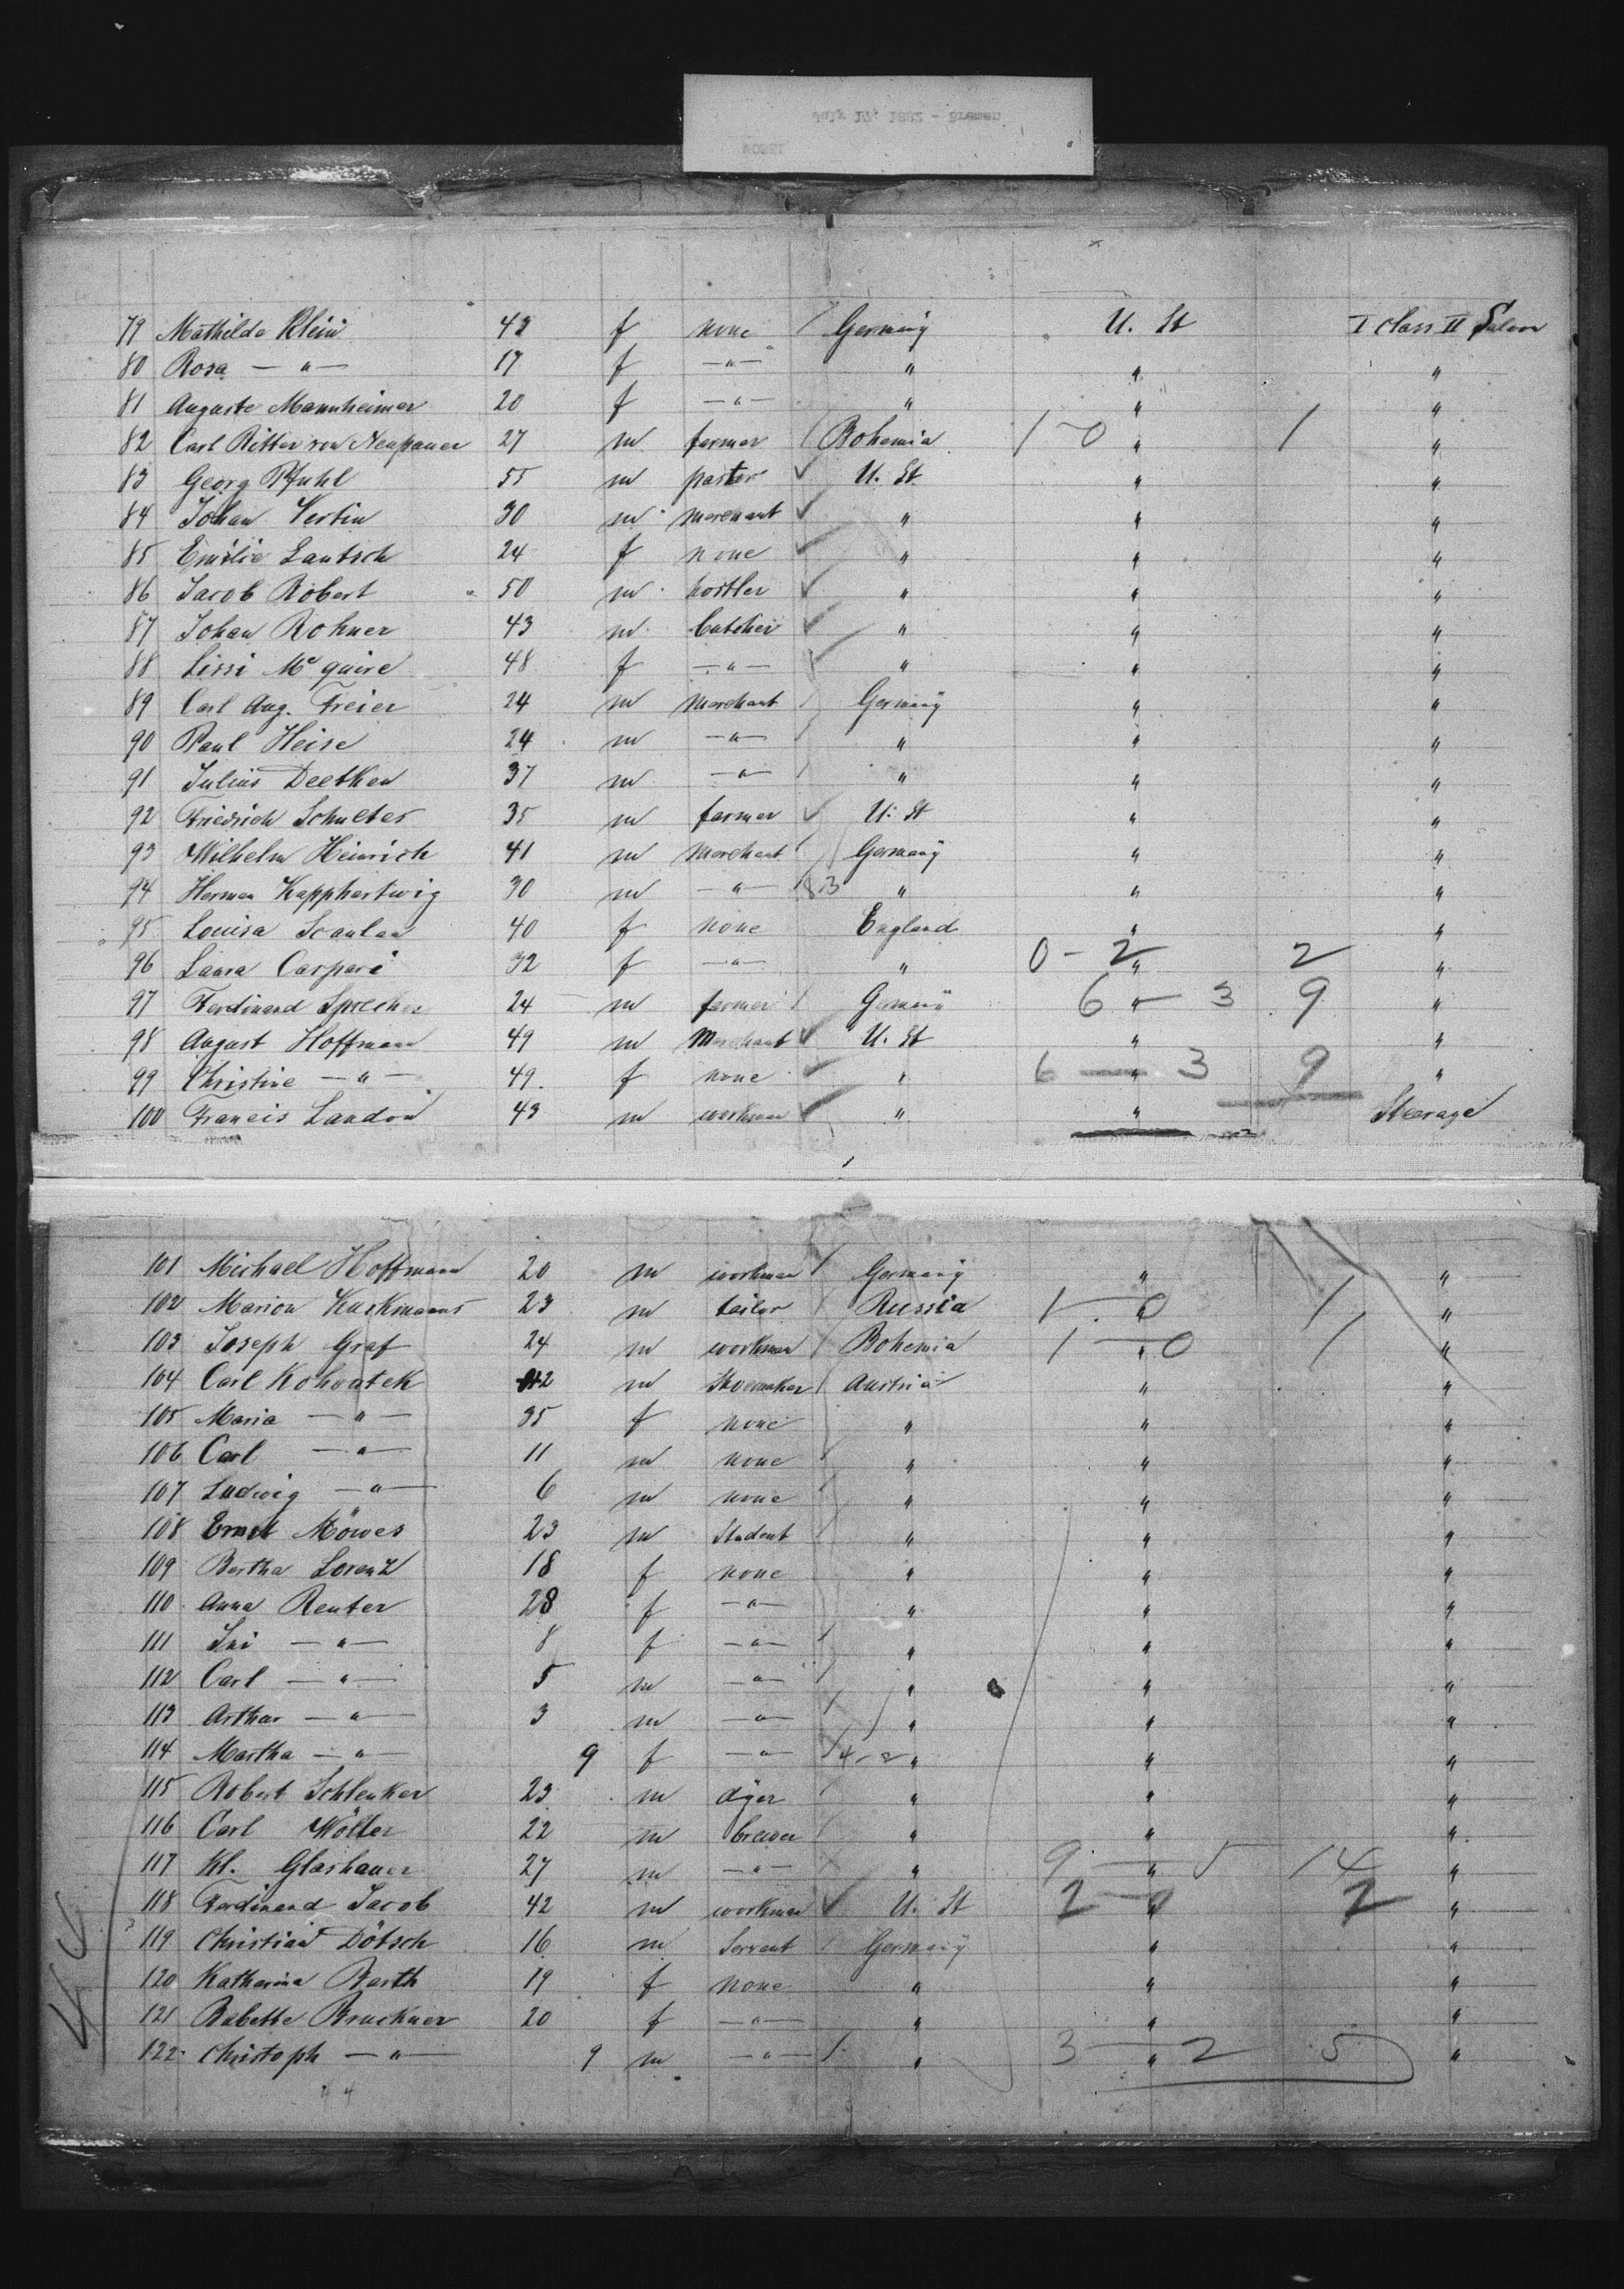 79 Mathilde Klein 43 f none / Germany U. St I class II Saloon
80 Rosa — " — 17 f — " — " " "
81 Auguste Mannheimer 20 f — " — " " "
82 Carl Ritter von Neupauer 27 m farmer / Bohemia 1 — 0 " 1 "
83 Georg Pfuhl 55 m pastor ✓ U. St " "
84 Johan Vertin 30 m merchant ✓ " " "
85 Emilie Lautsch 24 f none ✓ " " "
86 Jacob Robert 50 m hostler ✓ " " "
87 Johan Rohner 43 m butcher ✓ " " "
88 Lissi Mc quire 48 f — " — ✓ " " "
89 Carl Aug. Freier 24 m merchant / Germany " "
90 Paul Heise 24 m — " — / " " "
91 Julius Deetken 37 m — " — / " " "
92 Friedrich Schulter 35 m farmer ✓ U. St " "
93 Wilhelm Heinrich 41 m merchant / Germany " "
94 Herman Kapphertwig 30 m — " — / " " "
95 Louisa Scanlan 40 f none England " "
96 Laura Caspari 32 f — " — " 0 - 2 " 2 "
97 Ferdinand Sprecher 24 m farmer / Germany 6 — 3 9 "
98 August Hoffmann 49 m Merchant ✓ U. St " "
99 Christine — " — 49 f none ✓ " 6 — 3 9 "
100 Francis Landon 43 m workman ✓ " " Steerage
101 Michael Hoffmann 20 m workman / Germany " "
102 Marion Kurkmanns 23 m tailor / Russia 1 — 0 1 "
103 Joseph Graf 24 m workman / Bohemia 1 — 0 1 "
104 Carl Kohoutek 42 m Shoemaker / Austria " "
105 Maria — " — 35 f none " " "
106 Carl — " — 11 m none / " " "
107 Ludwig — " — 6 m none / " " "
108 Ernst Möwes 23 m Student / " " "
109 Bertha Lorenz 18 f none " " "
110 Anna Reuter 28 f — " — " " "
111 — " — 8 f — " — / " " "
112 Carl — " — 5 m — " — / " " "
113 Arthur — " — 3 m — " — / " " "
114 Martha — " — 9 f — " — / 4-2 " " "
115 Robert Schlenker 23 m dyer / " " "
116 Carl Wölter 22 m brewer / " " "
117 Kl. Glashauer 27 m — " — / " 9 — 5 14 "
118 Ferdinand Jacob 42 m workman ✓ U. St 2 — 0 2 "
119 Christian Dötsch 16 m Servant / Germany " "
120 Katharina Barth 19 f none " " "
121 Babette Bruckner 20 f — " — " " "
122 Christoph — " — 9 m — " — / " 3 — 2 5 "